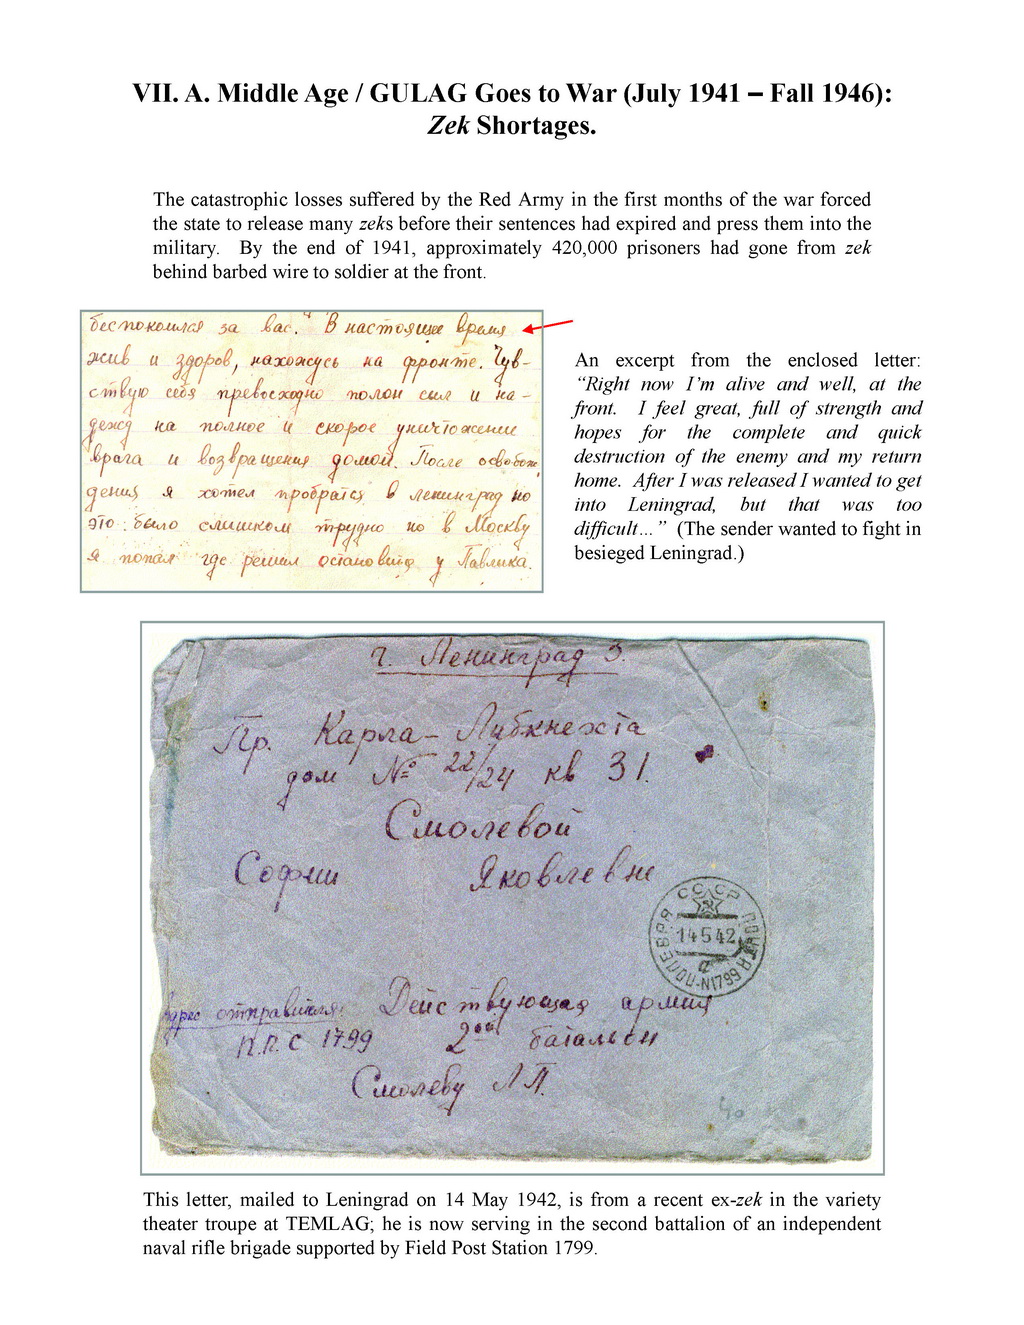 VII. A. Middle Age / GULAG Goes to War (July 1941 – Fall 1946):
Zek Shortages.
The catastrophic losses suffered by the Red Army in the first months of the war forced
the state to release many zeks before their sentences had expired and press them into the
military. By the end of 1941, approximately 420,000 prisoners had gone from zek
behind barbed wire to soldier at the front.
беспокоился за вас. В настоящее время
жив и здоров, нахожусь на фронте. Чув-
ствую себя превосходно полон сил и на-
дежд на полное и скорое уничтожение
врага и возвращения домой. После освобож
дения я хотел пробратся в ленинград но
это было слишком трудно но в Москву
я попал где решил остановится у Павлика.
An excerpt from the enclosed letter:
“Right now I’m alive and well, at the
front. I feel great, full of strength and
hopes for the complete and quick
destruction of the enemy and my return
home. After I was released I wanted to get
into Leningrad, but that was too
difficult…” (The sender wanted to fight in
besieged Leningrad.)
г. Ленинград 3.
Пр. Карла-Либкнехта
дом № 22/24 кв 31.
Смолевой
Софии Яковлевне
СССР
14 5 42
ПОЛЕВАЯ ПОЧТА
N1799
а
Адрес отправителя: Действующая армия
П.П.С 1799 2ой батальон
Смолеву Л П.
40
This letter, mailed to Leningrad on 14 May 1942, is from a recent ex-zek in the variety
theater troupe at TEMLAG; he is now serving in the second battalion of an independent
naval rifle brigade supported by Field Post Station 1799.